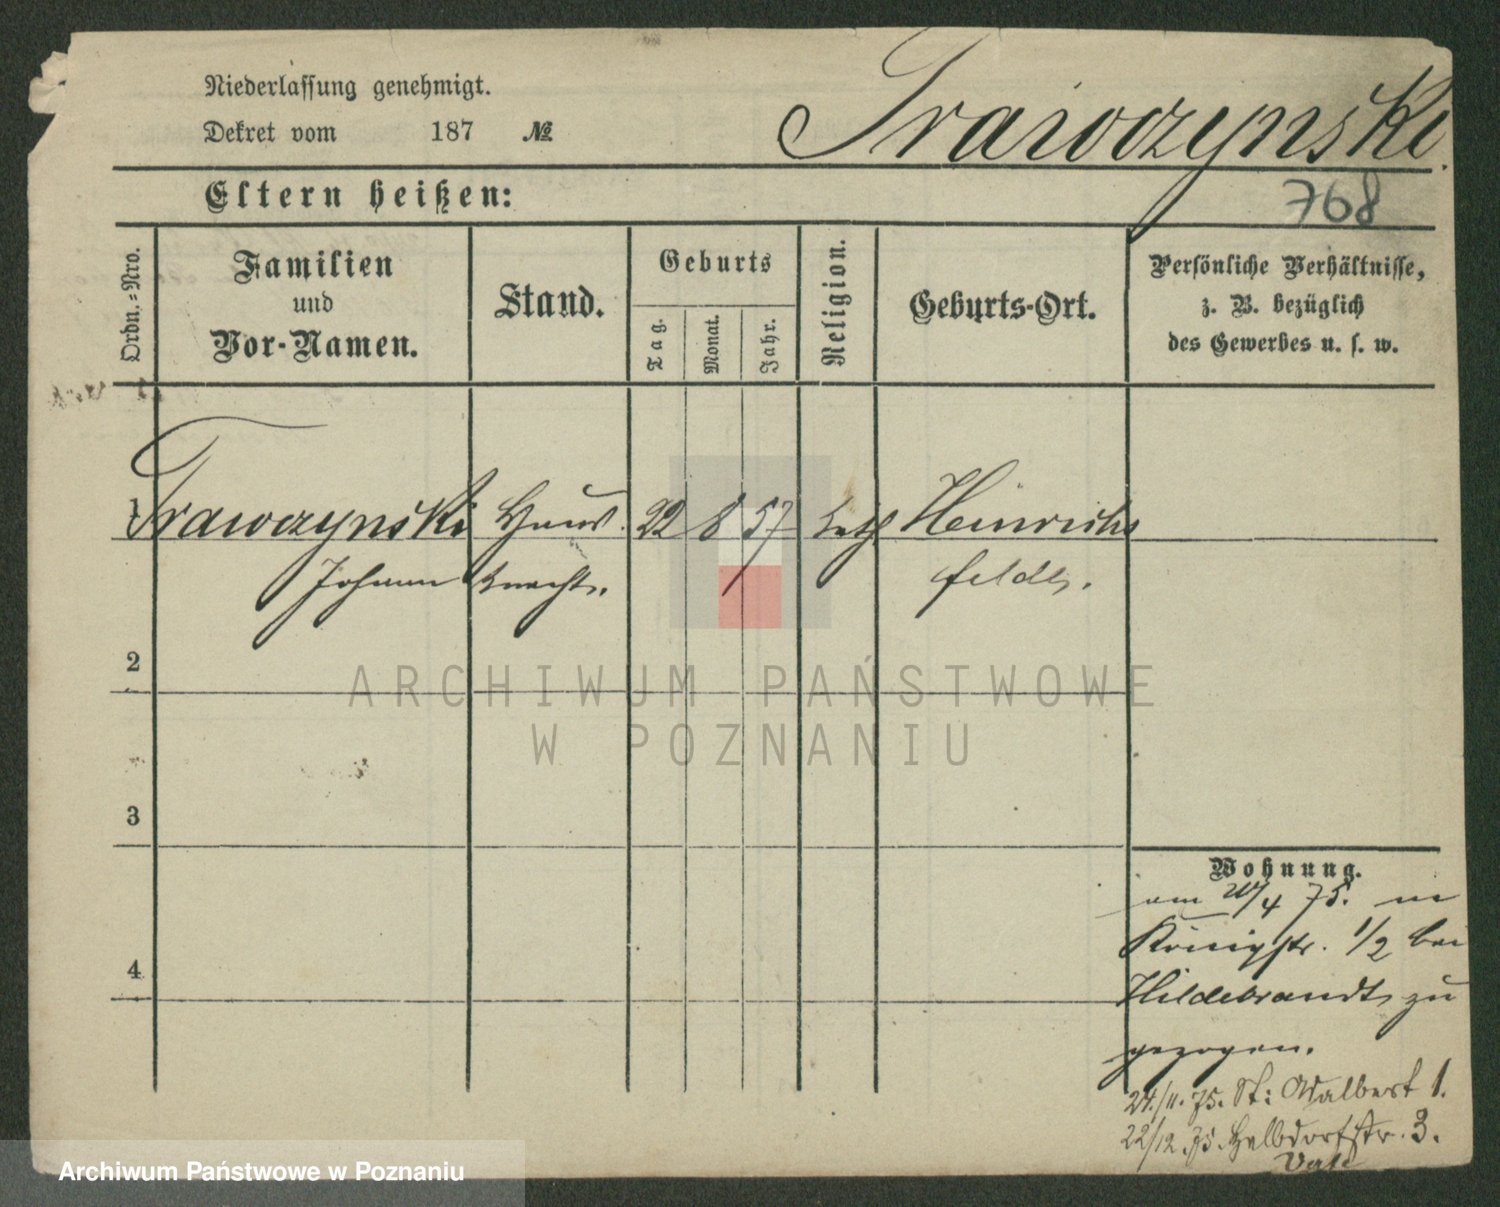 Niederlassung genehmigt.
Dekret vom 187 №
Trawczynski.
Eltern heißen:
768
Ordn.-Nro.
Familien
und
Vor-Namen.
Stand.
Geburts
Tag.
Monat.
Jahr.
Religion.
Geburts-Ort.
Persönliche Verhältnisse,
z. B. bezüglich
des Gewerbes u. s. w.
1 Trawczynski Haus 22 8 57 kath Heinrichs
Johann knecht. felde.
2
ARCHIWUM PAŃSTWOWE
W POZNANIU
3
4
Wohnung.
am 20/4 75. in
Königstr. 1/2 bei
Hildebrandt zu
gezogen.
24./11. 75. St: Adalbert 1.
22/12. 75. Halbdorfstr. 3.
Archiwum Państwowe w Poznaniu